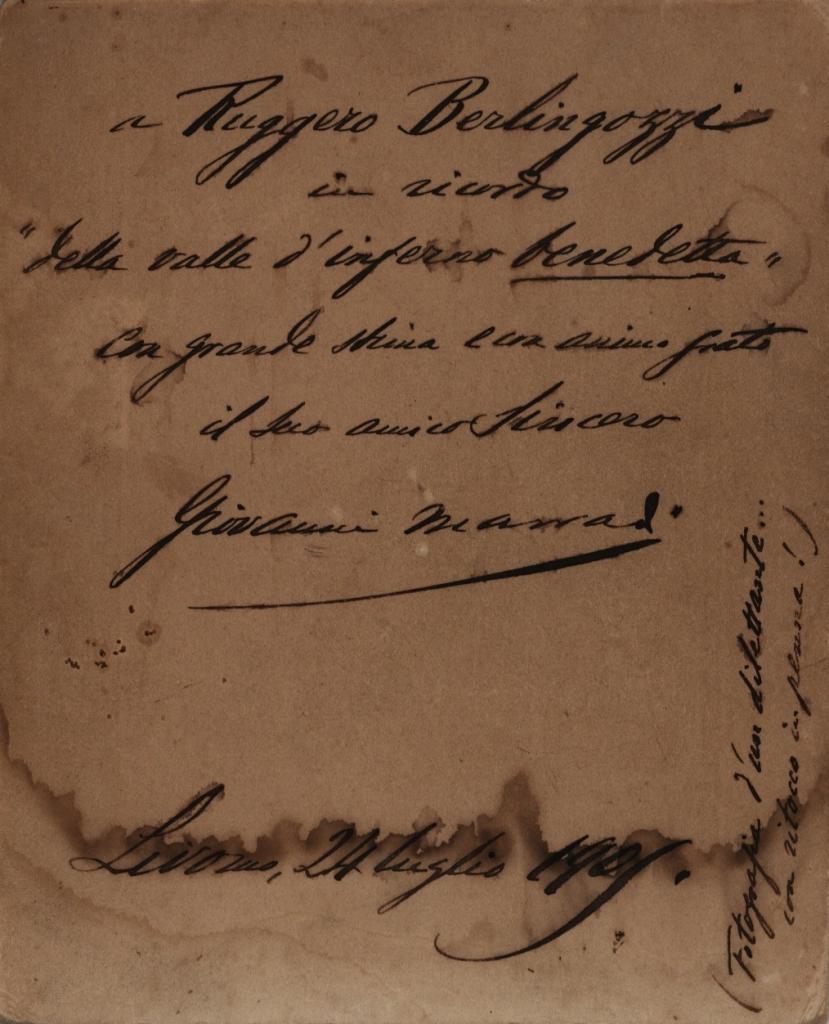 a Ruggero Berlingozzi
in ricordo
"della valle d'inferno benedetta"
con grande stima e con animo grato
il suo amico sincero
Giovanni Marradi
Livorno, 24 luglio
(Fotografia d'un dilettante...
con ritocco in penna!)